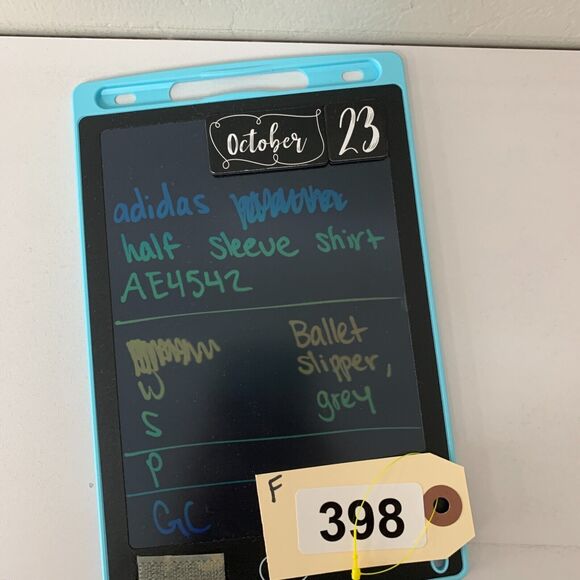 October 23
adidas
half sleeve shirt
AE4542
Ballet
slipper,
W
grey
S
P
GC
F
398